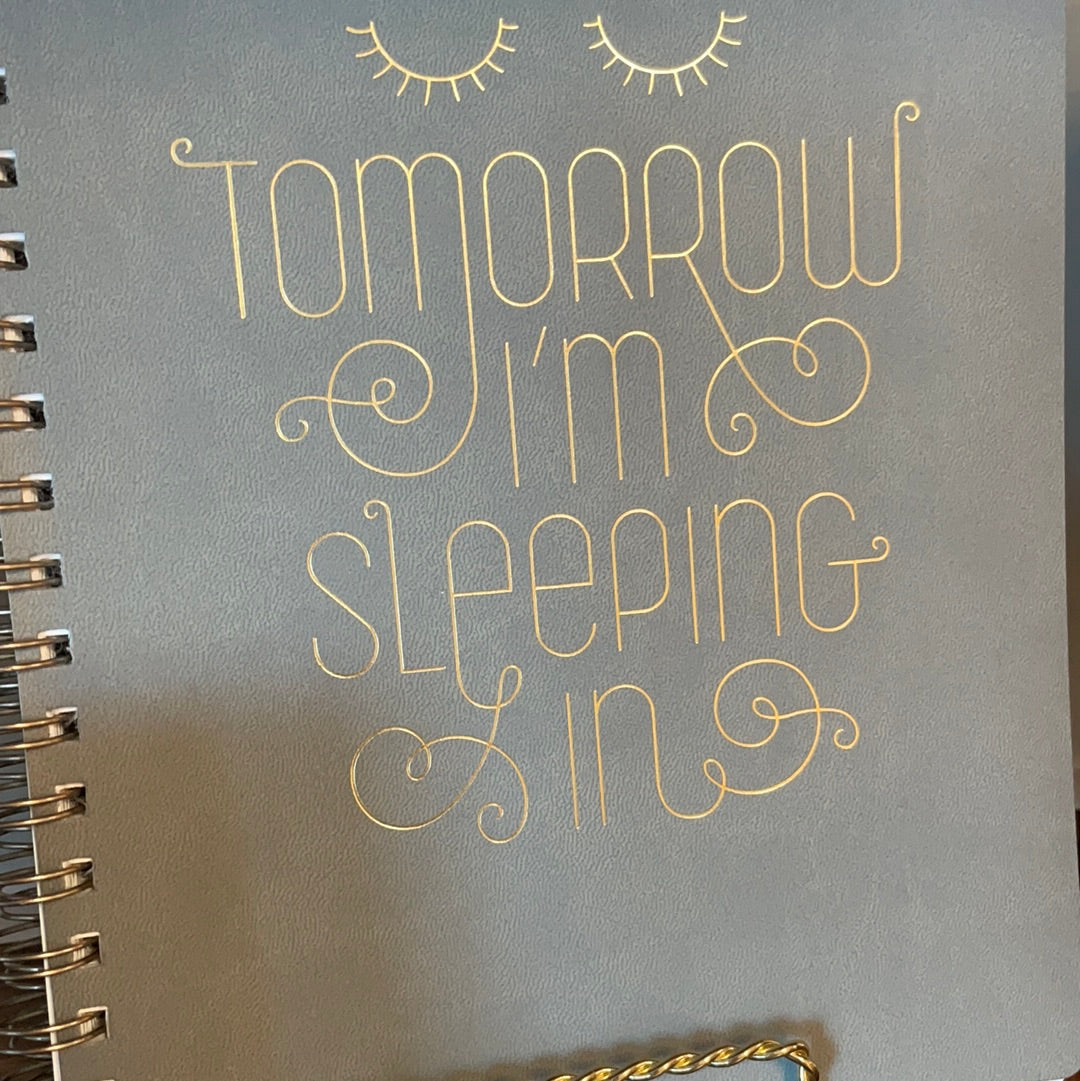 TOMORROW
I'M
SLEEPING
IN